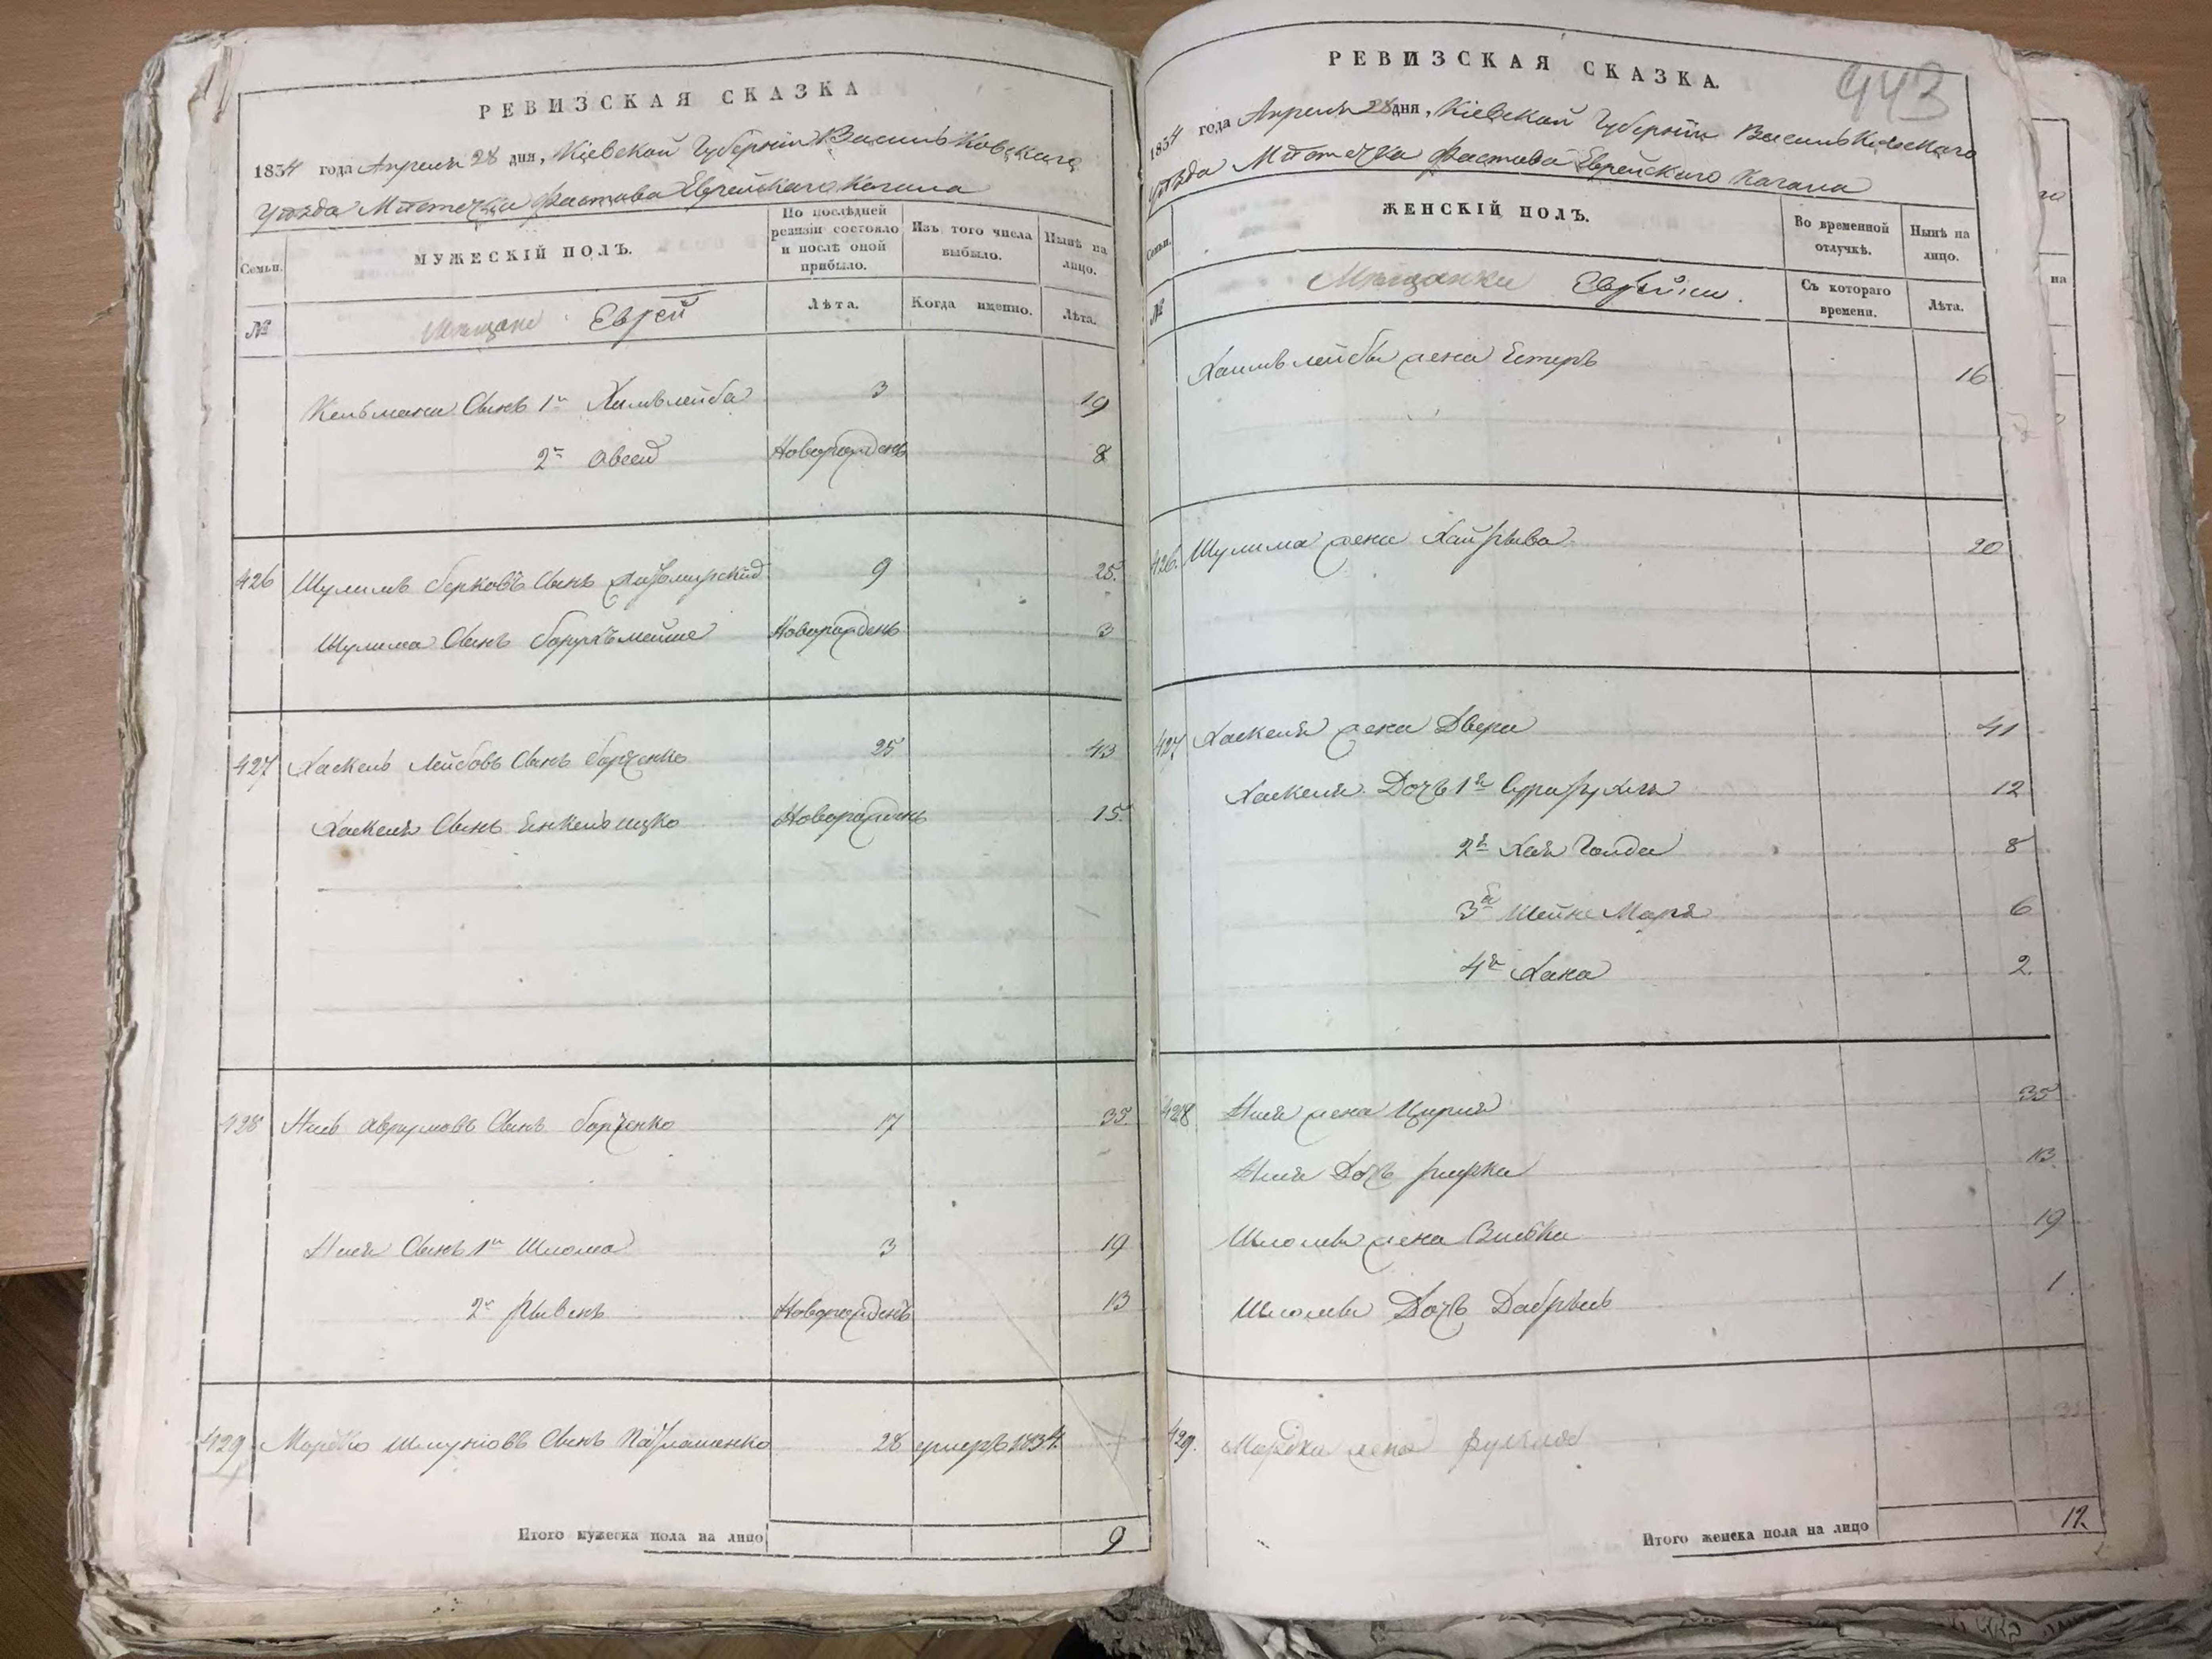 РЕВИЗСКАЯ СКАЗКА
1834 года Апреля 28 дня, Кіевской Губерніи Васильковскаго
Уѣзда Мѣстечка Фастова Еврейскаго Кагала
Семьи.
МУЖЕСКІЙ ПОЛЪ.
По послѣдней ревизіи состояло и послѣ оной прибыло.
Изъ того числа выбыло.
Нынѣ на лицо.
№
Мѣщане Еврей
Лѣта.
Когда именно.
Лѣта.
Кельмана Сынъ 1й Хаимълейба 3 19
2й Овсей Новорожденъ 8
426 Шулимъ Берковъ Сынъ 9 25.
Шулима Сынъ Борухъмойше Новорожденъ 3
427 Хаскель Лейбовъ Сынъ 25 43
Хаскеля Сынъ Янкельицко Новорожденъ 15.
428 Аврумовъ Сынъ 17 35.
Сынъ 1й Шлома 3 19
2й Рывенъ Новорожденъ 13
429 Мордко Сынъ 28 умеръ 1834.
Итого мужеска пола на лицо 9
РЕВИЗСКАЯ СКАЗКА.
443
1834 года Апреля 28 дня, Кіевской Губерніи Васильковскаго
Уѣзда Мѣстечка Фастова Еврейскаго Кагала
Семьи.
ЖЕНСКІЙ ПОЛЪ.
Во временной отлучкѣ.
Нынѣ на лицо.
№
Мѣщанки Еврейки.
Съ котораго времени.
Лѣта.
Хаимълейбы жена Естеръ 16
426. Шулима жена Хайрыва 20
427 Хаскеля жена Двера 41
Хаскеля Дочь 1я Суррарухля 12
2я Хая Голда 8
3я Шейне Маря 6
4я Хана 2.
428 жена Цирля 35
Дочь Рифка 13.
Шломы жена Вилька 19
Шломы Дочь Добрысь 1.
429. Мордка жена
Итого женска пола на лицо 12.